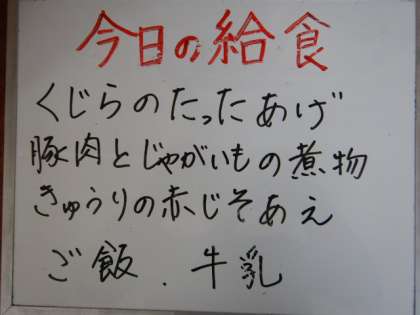 今日の給食
くじらのたったあげ
豚肉とじゃがいもの煮物
きゅうりの赤じそあえ
ご飯．牛乳